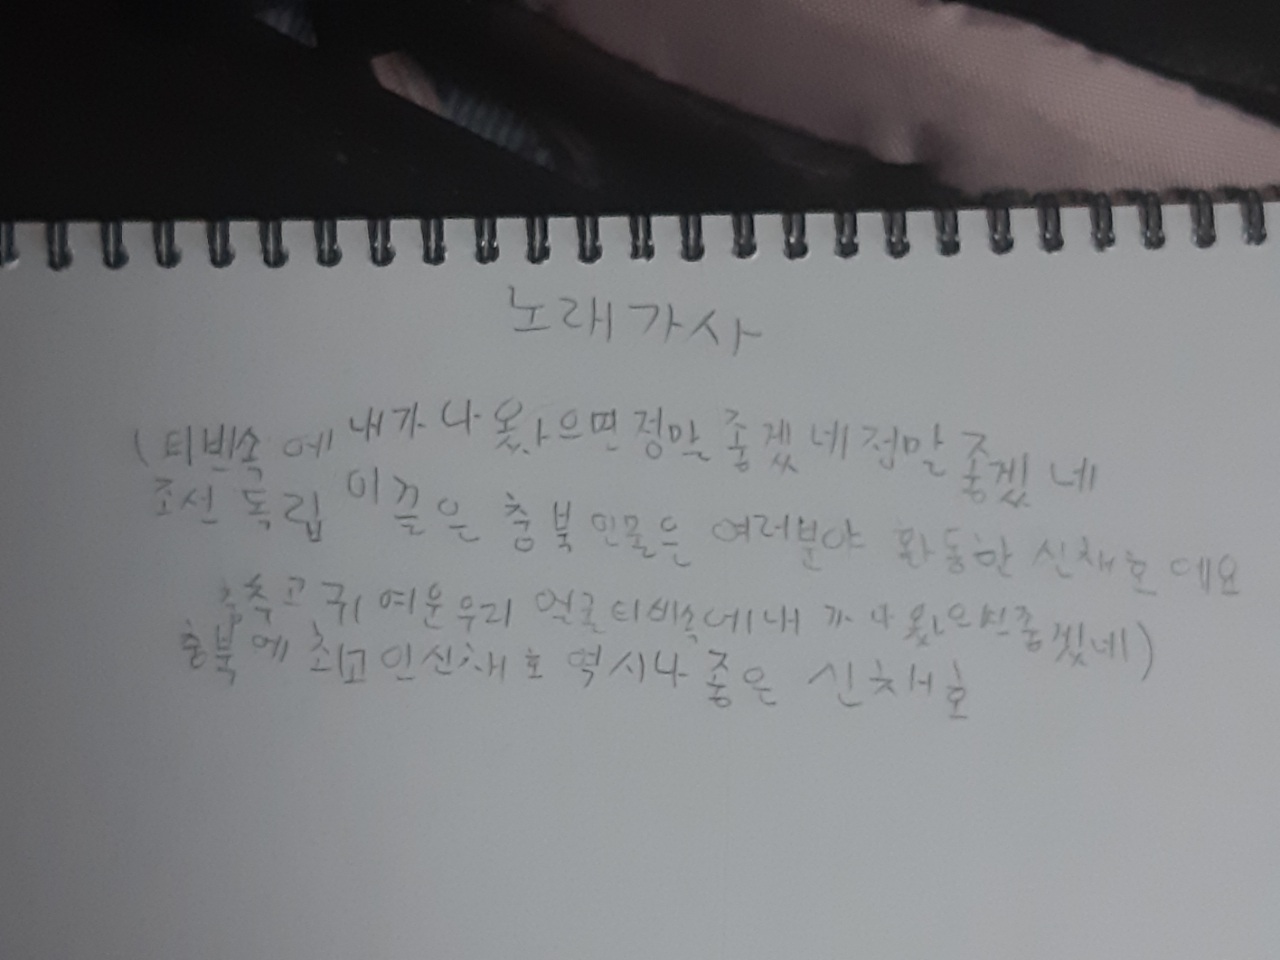 노래가사
(티비속에 내가 나왔으면 정말 좋겠네 정말 좋겠네
조선 독립 이끌은 충북 인물은 여러분야 활동한 신채호 예요
춤추고 귀여운 우리 얼굴 티비속에 내가 나왔으면 좋겠네)
충북에 최고인 신채호 역시나 좋은 신채호